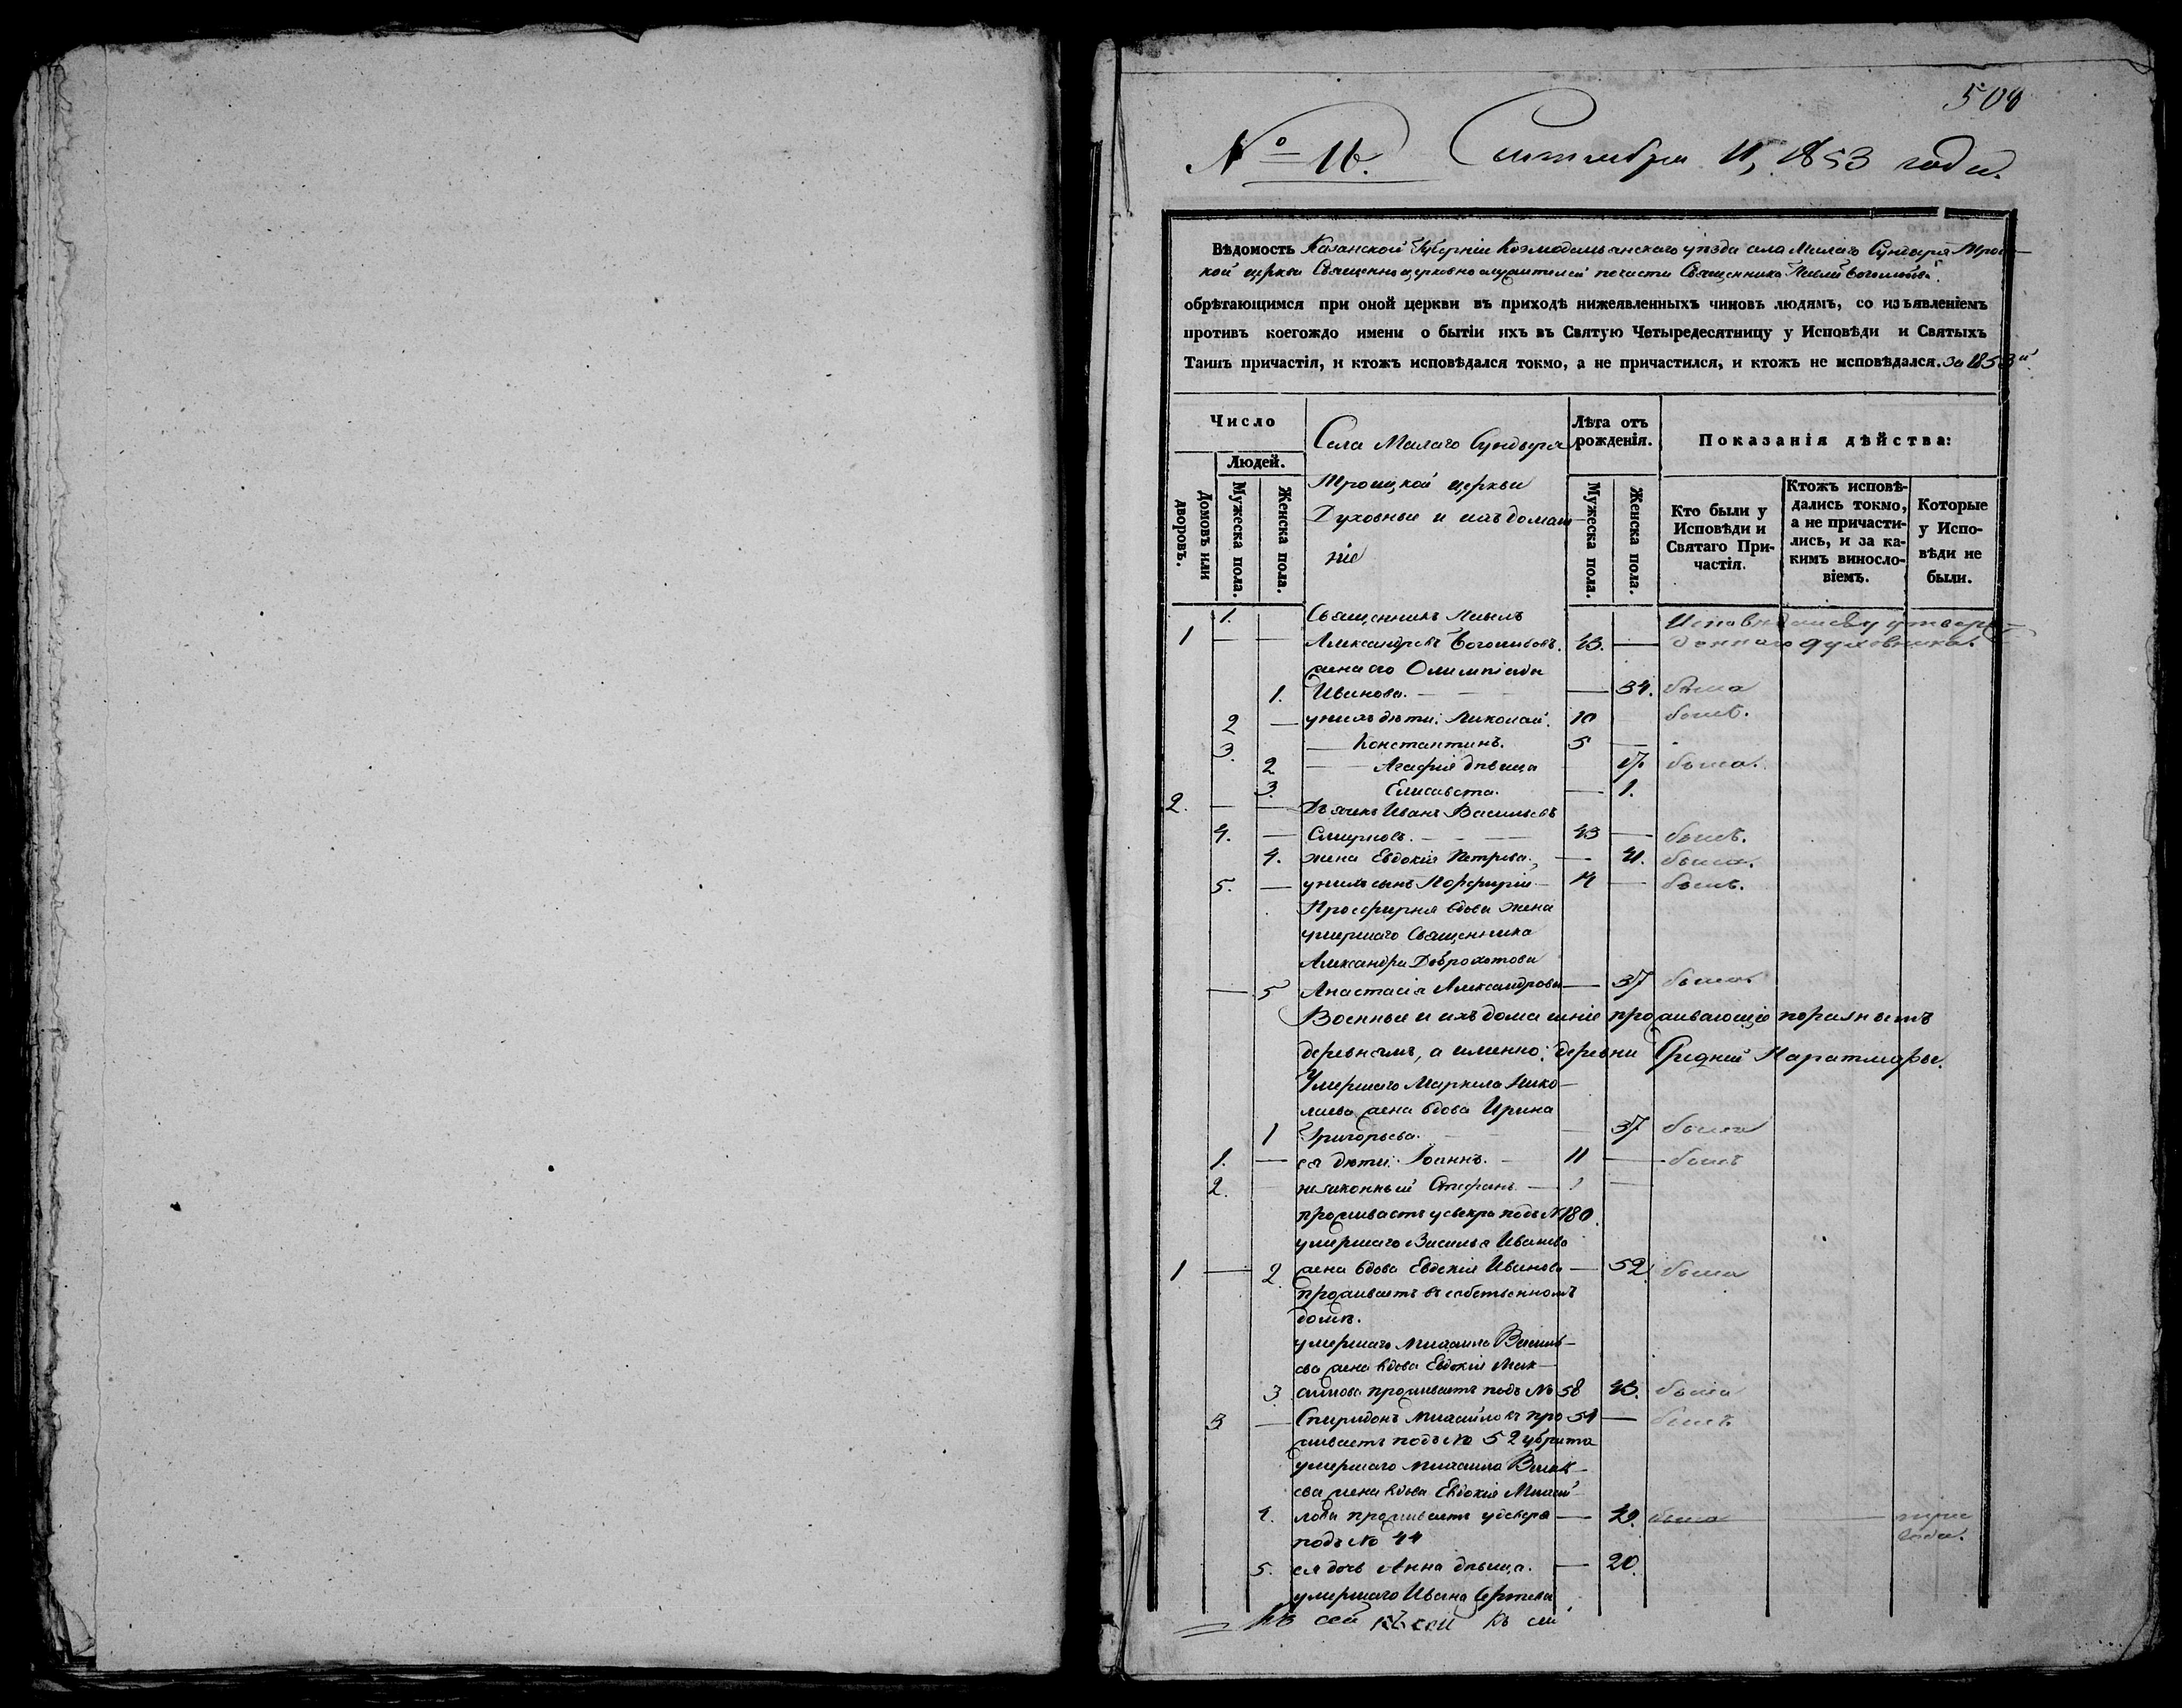 508
№ 16. Сентября 11, 1853 года.
Вѣдомость Казанской Губерніи Козмодемьянскаго уѣзда села Малаго Сундыря Трои-
кой церкви Священноцерковнослужителей по части Священника Павла Боголюбова.
обрѣтающимся при оной церкви въ приходѣ нижеявленныхъ чиновъ людямъ, со изъявленіемъ
противъ коегождо имени о бытіи ихъ въ Святую Четыредесятницу у Исповѣди и Святыхъ
Таинъ причастія, и ктожъ исповѣдался токмо, а не причастился, и ктожъ не исповѣдался. за 1853й
Число
Людей.
Домовъ или дворовъ.
Мужеска пола.
Женска пола.
Села Малаго Сундыря
Троицкой церкви
Духовные и ихъ домаш-
ніе
Лѣта отъ
рожденія.
Мужеска пола.
Женска пола.
Показанія дѣйства:
Кто были у
Исповѣди и
Святаго При-
частія.
Ктожъ исповѣ-
дались токмо,
а не причасти-
лись, и за ка-
кимъ винослo-
віемъ.
Которые
у Испо-
вѣди не
были.
1. Священникъ Павелъ
1 Александровъ Боголюбовъ. 43. духовника.
жена его Олимпіада
1. Иванова. 34. была
2 у нихъ дѣти: Николай. 10 былъ.
3. Константинъ. 5
2 Агафія дѣвица 17. была.
3. Елисавета. 1.
2. Дьячекъ Иванъ Васильевъ
4. Смирновъ. 43 былъ.
4. жена Евдокія Петрова. 41. была.
5. у нихъ сынъ Порфирій 14 былъ.
Просфирня вдова жена
умершаго Священника
Александра Доброхотова
5 Анастасія Александрова 37 была
Военные и ихъ домашніе проживающіе по разнымъ
деревнямъ, а именно: деревни Средней
Умершаго Маркела Нико-
лаева жена вдова Ирина
1 Григорьева. 37. была
1. ея дѣти: Іоаннъ. 11 былъ
2. незаконный Стефанъ
проживаетъ у свекра подъ № 180.
умершаго Василья Иванова
1 2 жена вдова Евдокія Иванова 52. была
проживаетъ въ собственномъ
домѣ.
умершаго Михаила Василь-
ева жена вдова Евдокія Мак-
3. симова проживаетъ подъ № 58 43. была
3 Спиридонъ Михайловъ про 54 былъ
живаетъ подъ № 52 у брата
умершаго Михаила
ева жена вдова Евдокія Михай-
4. лова проживаетъ у свекра 49. была
подъ № 44
5. ея дочь Анна дѣвица. 20.
умершаго Ивана Сергѣева
Къ сей къ сей къ сей